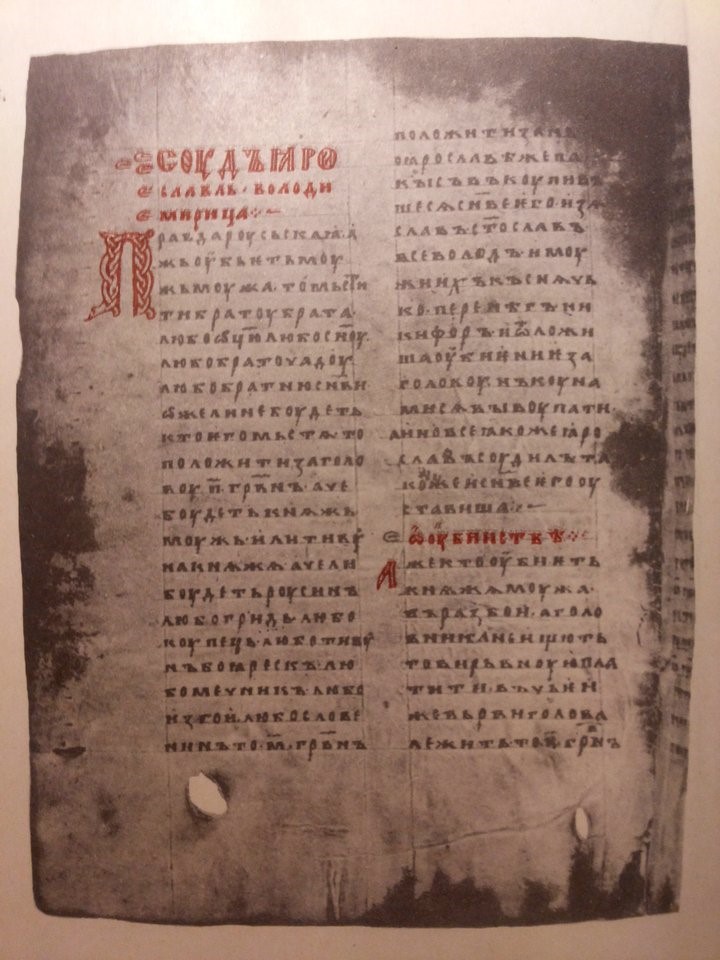 СОУДЪ ꙖРО
СЛАВЛЬ · ВОЛОДИ
МИРИЦА
Правда роусьскаꙗ · а
жь оубьѥть моу
жь моужа · то мьсти
ти братоу брата ·
любо ѿцю любо сн҃оу ·
любо братоучадоу
любо братню сн҃ви
ѡже ли не боудеть
кто ѥго мьстѧ · то
положити за голо
воу · п҃ · грвн҃ъ · аче
боудеть кнѧжь
моужь · или тивоу
на кнѧжѧ · аче ли
боудеть роусинъ
любо гридь · любо
коупець · любо тивоу
нъ боꙗрескъ · лю
бо мечникъ · либо
изгои · любо слове
нинъ то · м҃ · грвн҃ъ
положити за нь
ꙗрославѣ же па
кы съвъкоупивъ
шесѧ сн҃ве ѥго изѧ
славъ ст҃ославъ
всеволодъ и моу
жи ихъ къснѧчь
ко · перенѣгъ ни
кифоръ и ѿложи
ша оубиѥниѥ за
головоу нъ коуна
ми сѧ выкоупати ·
а ино все ꙗкоже ꙗро
славъ соудилъ та
коже и сн҃ве ѥго оу
ставиша
ѡ оубииствѣ
Аже кто оубиѥть
кнѧжѧ моужа ·
въ разбои · а голо
вника не ищють
то вирьвноую пла
тити · въ чьѥи
же вьрви голова
лежить то п҃ · грвн҃ъ